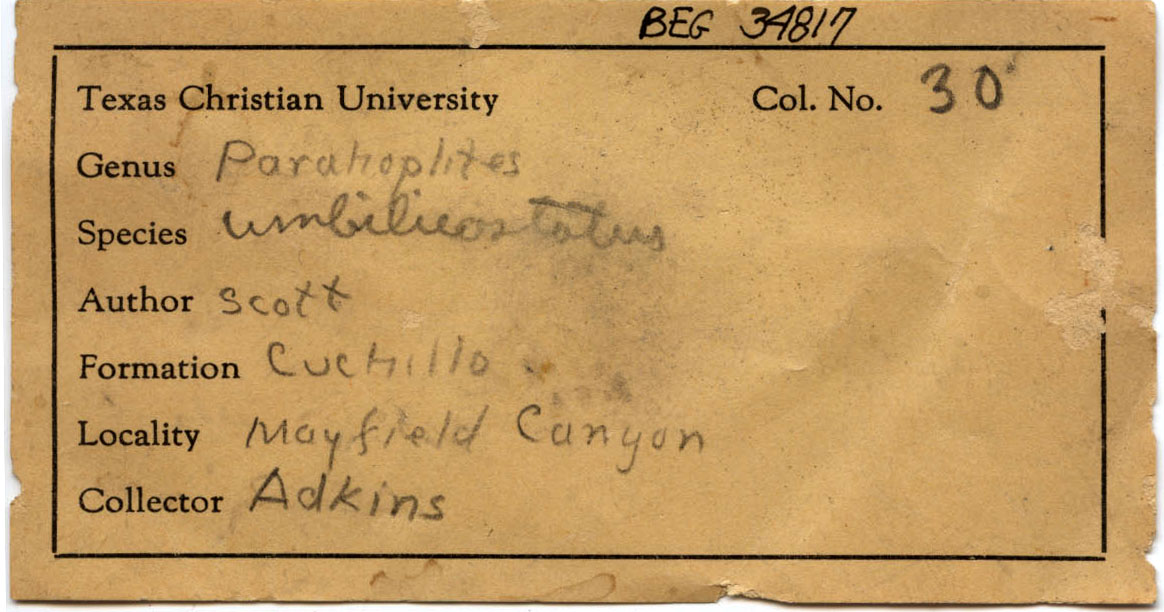 BEG 34817
Texas Christian University Col. No. 30
Genus Parahoplites
Species umbilicostatus
Author Scott
Formation Cuchillo
Locality Mayfield Canyon
Collector Adkins